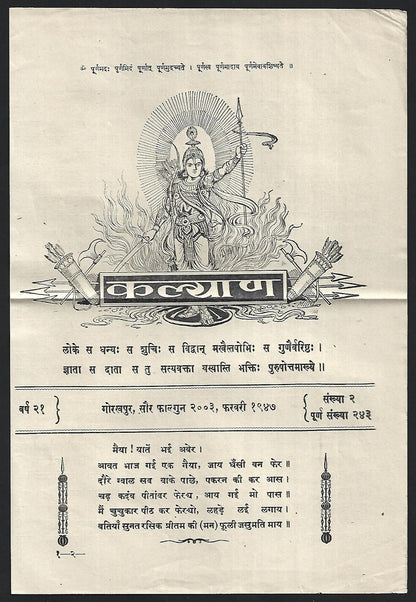 ॐ पूर्णमदः पूर्णमिदं पूर्णात् पूर्णमुदच्यते । पूर्णस्य पूर्णमादाय पूर्णमेवावशिष्यते ॥
कल्याण
लोके स धन्यः स शुचिः स विद्वान् मखैस्तपोभिः स गुणैर्वरिष्ठः ।
ज्ञाता स दाता स तु सत्यवक्ता यस्यास्ति भक्तिः पुरुषोत्तमाख्ये ॥
वर्ष २१
गोरखपुर, सौर फाल्गुन २००३, फरवरी १९४७
संख्या २
पूर्ण संख्या २४३
मैया! यातें भई अबेर ।
आवत भाज गई एक गैया, जाय धँसी बन फेर ॥
दौरे ग्वाल सब वाके पाछे, पकरन की कर आस ।
चढ़ कदंब पीतांबर फेरयो, आय गई मो पास ॥
मैं चुचुकार पीठ कर फेरयो, लइ लगाय ।
बतियाँ सुनत रसिक प्रीतम की (मन) फूली जसुमति माय ॥
१—२—